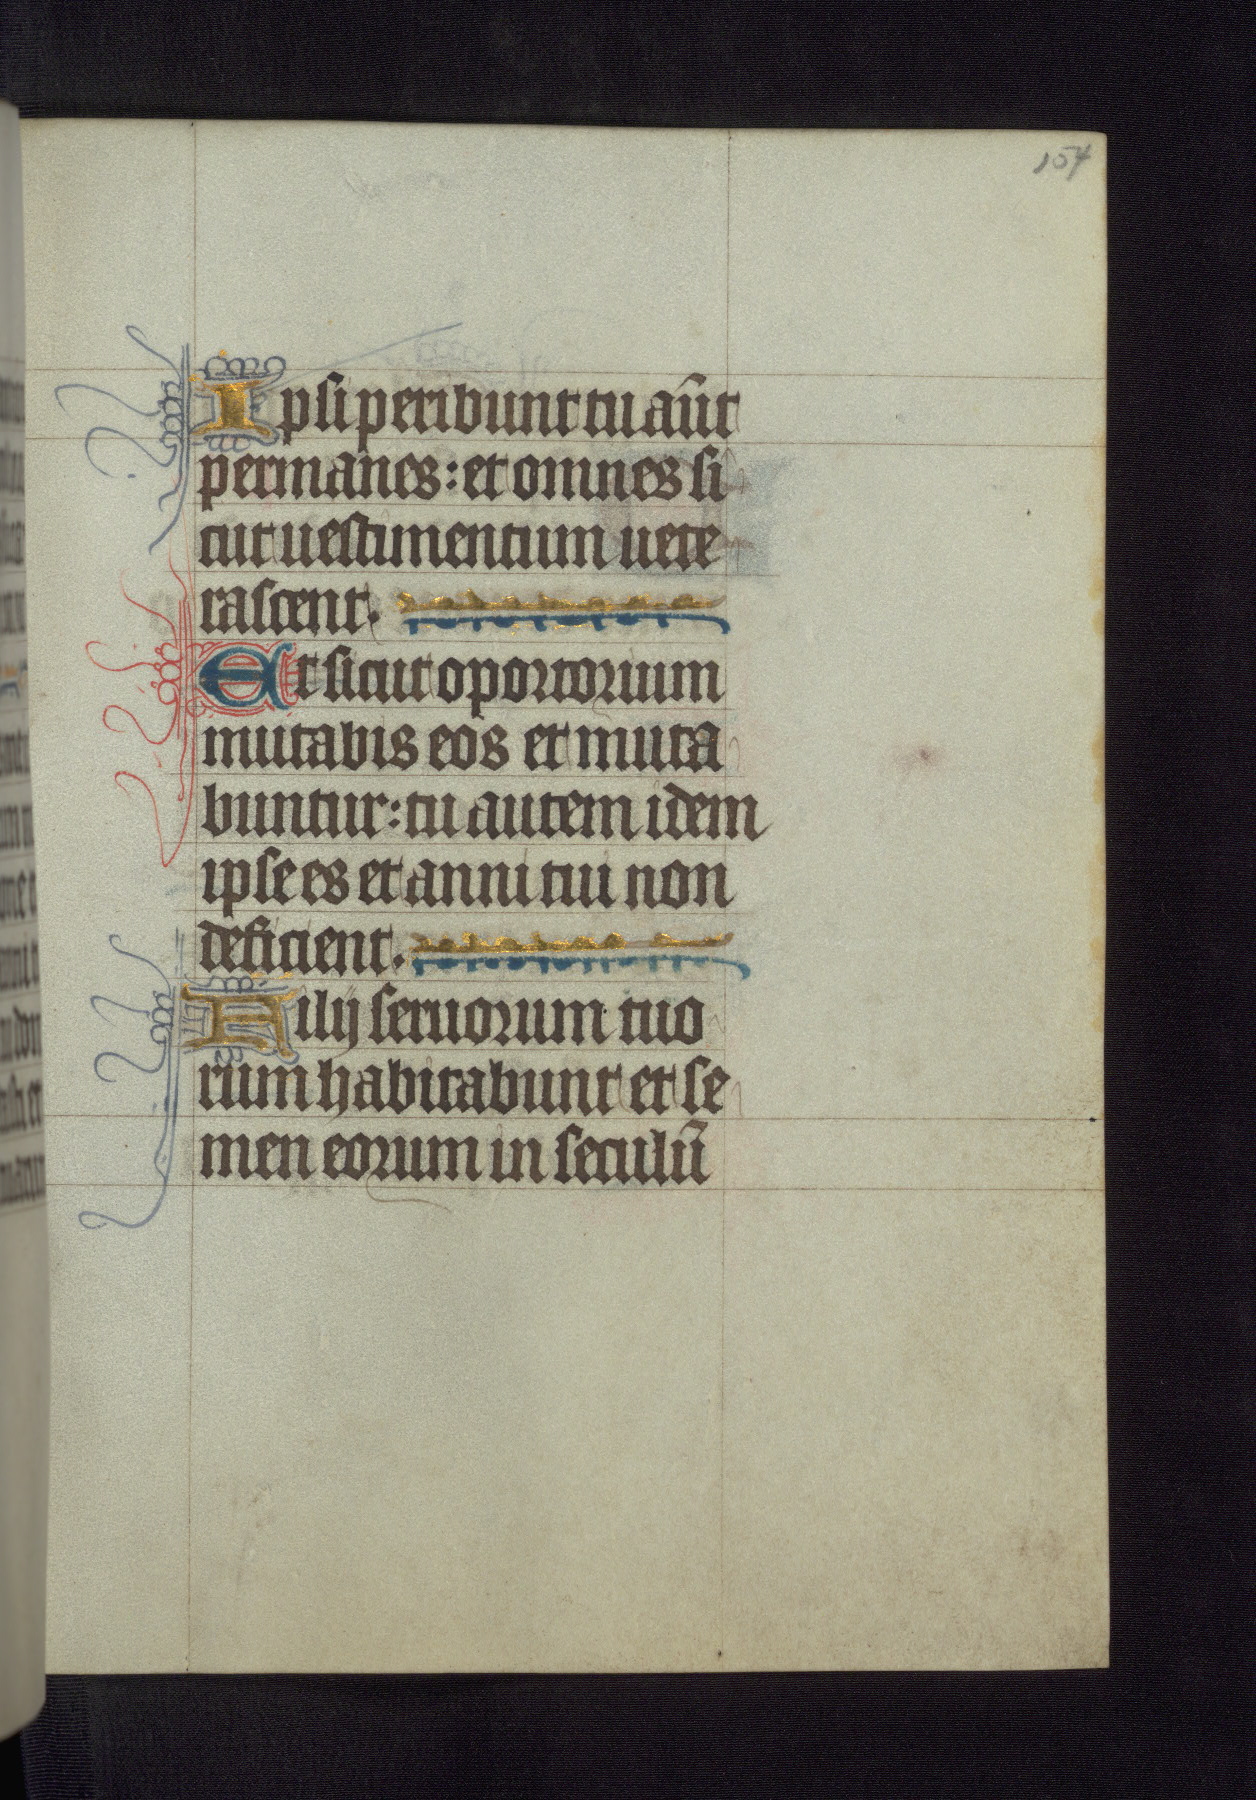 154
Ipsi peribunt tu aūt
permanes: et omnes si
cut uestimentum uete
rascent.
Et sicut oportorium
mutabis eos et muta
buntur: tu autem idem
ipse es et anni tui non
deficient.
Filij seruorum tuo
rum habitabunt et se
men eorum in seculū